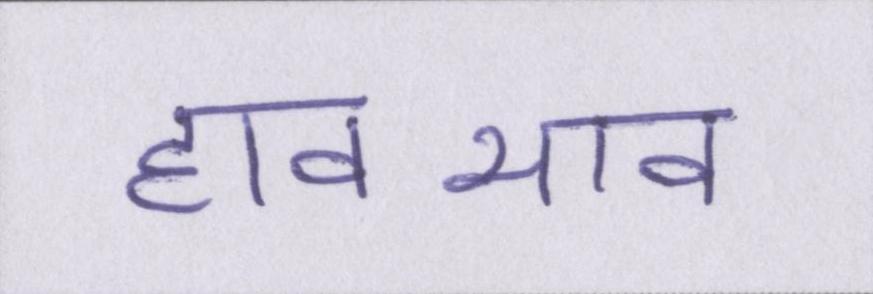 हाव भाव